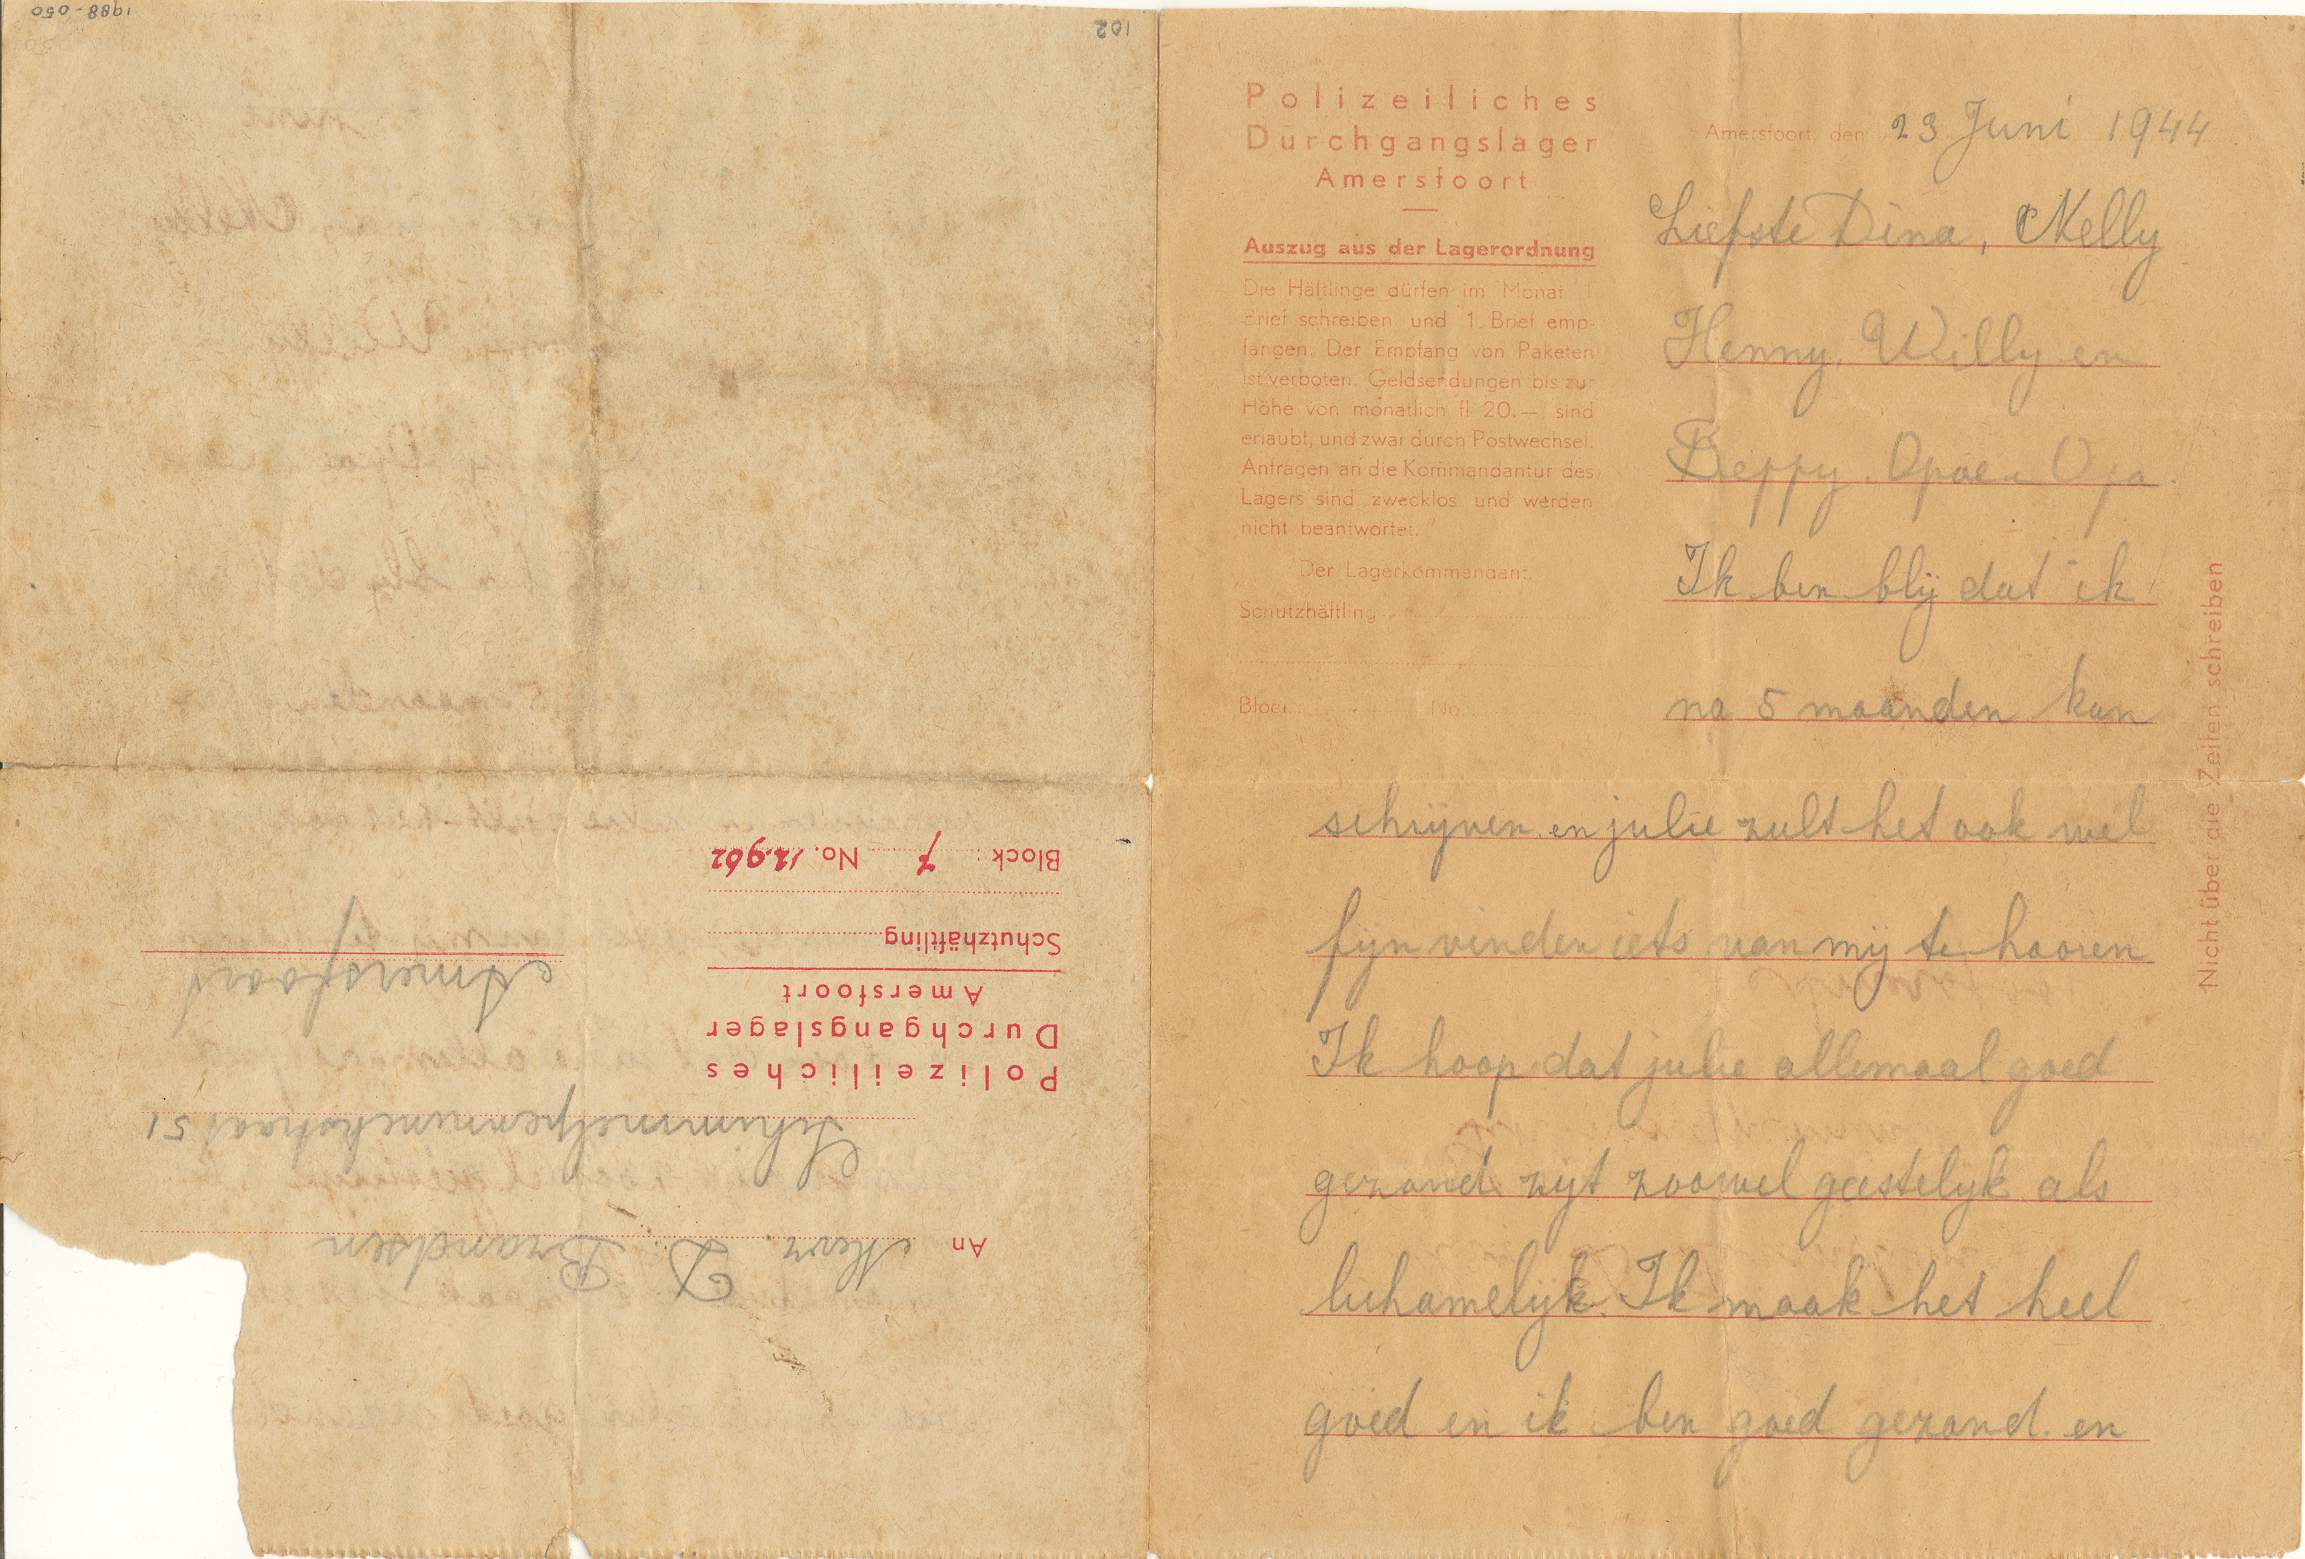 1988-050
102
Block: 7 No. 12.962
Schutzhäftling
Polizeiliches
Durchgangslager
Amersfoort
An Mevr. D. Brandsen
Schimmelpenninckstraat 51
Amersfoort
Polizeiliches
Durchgangslager
Amersfoort
Auszug aus der Lagerordnung
Die Häftlinge dürfen im Monat 1
Brief schreiben und 1. Brief emp-
fangen. Der Empfang von Paketen
ist verboten. Geldsendungen bis zur
Höhe von monatlich fl 20.— sind
erlaubt, und zwar durch Postwechsel.
Anfragen an die Kommandantur des
Lagers sind zwecklos und werden
nicht beantwortet.
Der Lagerkommandant.
Schutzhäftling
Block No.
Amersfoort, den 23 Juni 1944
Liefste Dina, Nelly
Henny, Willy en
Beppy. Opoe en Opa
Ik ben blij dat ik
na 5 maanden kan
schrijven en julie zult het ook wel
fijn vinden iets van mij te hooren
Ik hoop dat julie allemaal goed
gezond zijt zoowel geestelijk als
lichamelijk. Ik maak het heel
goed en ik ben goed gezond. en
Nicht über die Zeilen schreiben